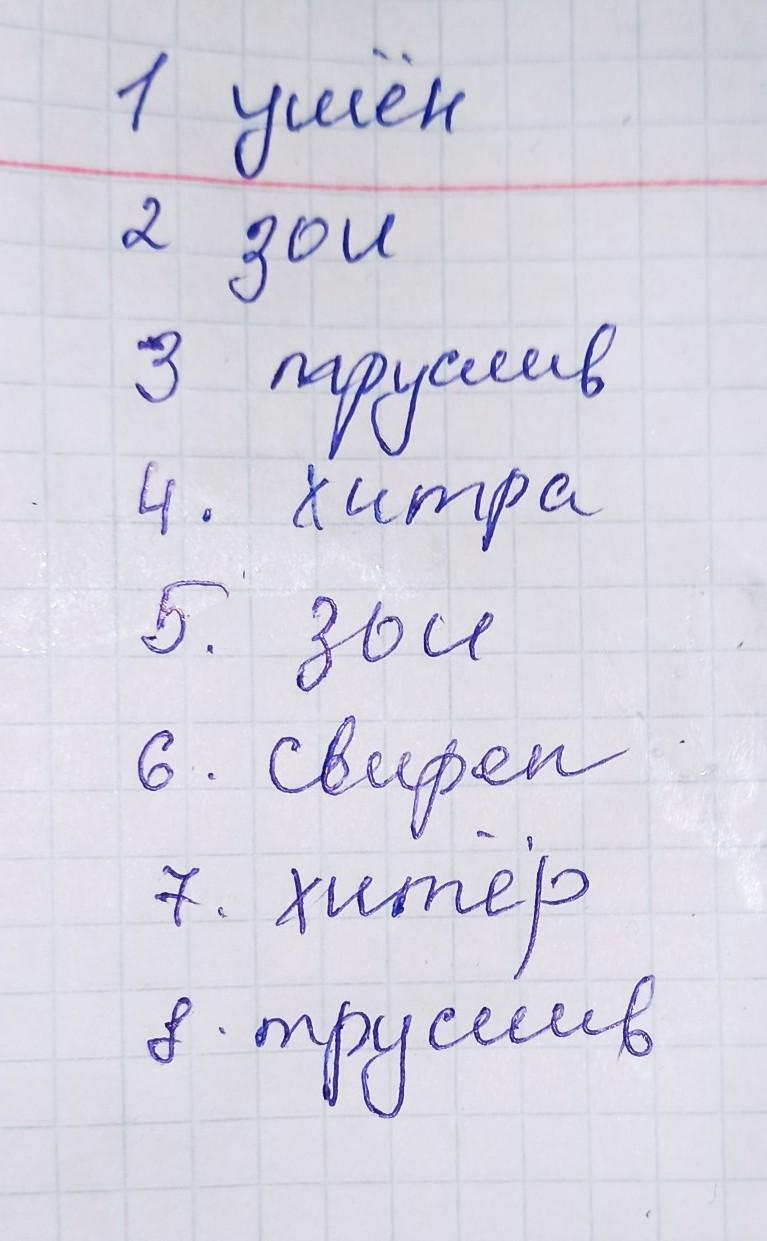 1 умён
2 зол
3 труслив
4. хитра
5. зол
6. свиреп
7. хитёр
8. труслив